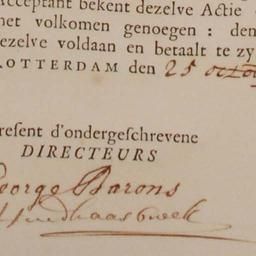 Acceptant bekent dezelve Actie
met volkomen genoegen : den
ezelve voldaan en betaalt te zy
ROTTERDAM den 25 octo
resent d'ondergeschrevene
DIRECTEURS
George Barons